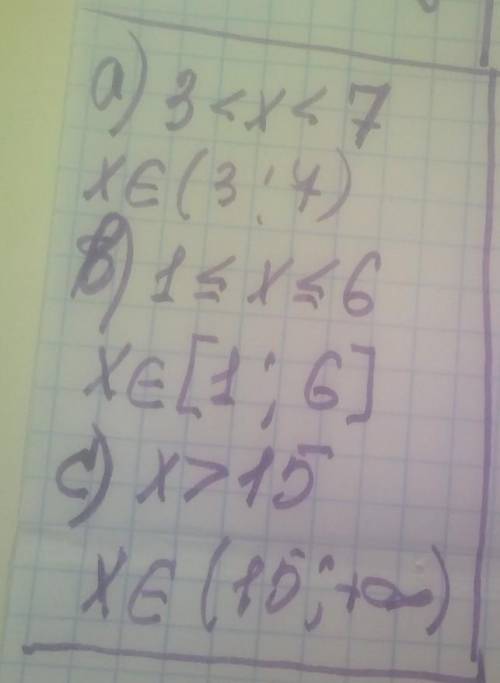 a) 3 < x < 7
x∈(3;7)
b) 1 ≤ x ≤ 6
x∈[1;6]
c) x > 15
x∈(15;+∞)